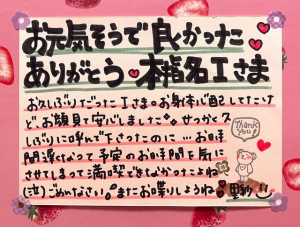 お元気そうで良かった
ありがとう 本指名Iさま
お久しぶりだったIさま。お身体心配してたけ
ど、お顔見て安心しました。せっかくス
しぶりに呼んで下さったのに…お時
間遅くなって予定のお時間を気に
させてしまって満喫できなかったよね
(泣)ごめんなさい。またお喋りしようね
Thank
you!